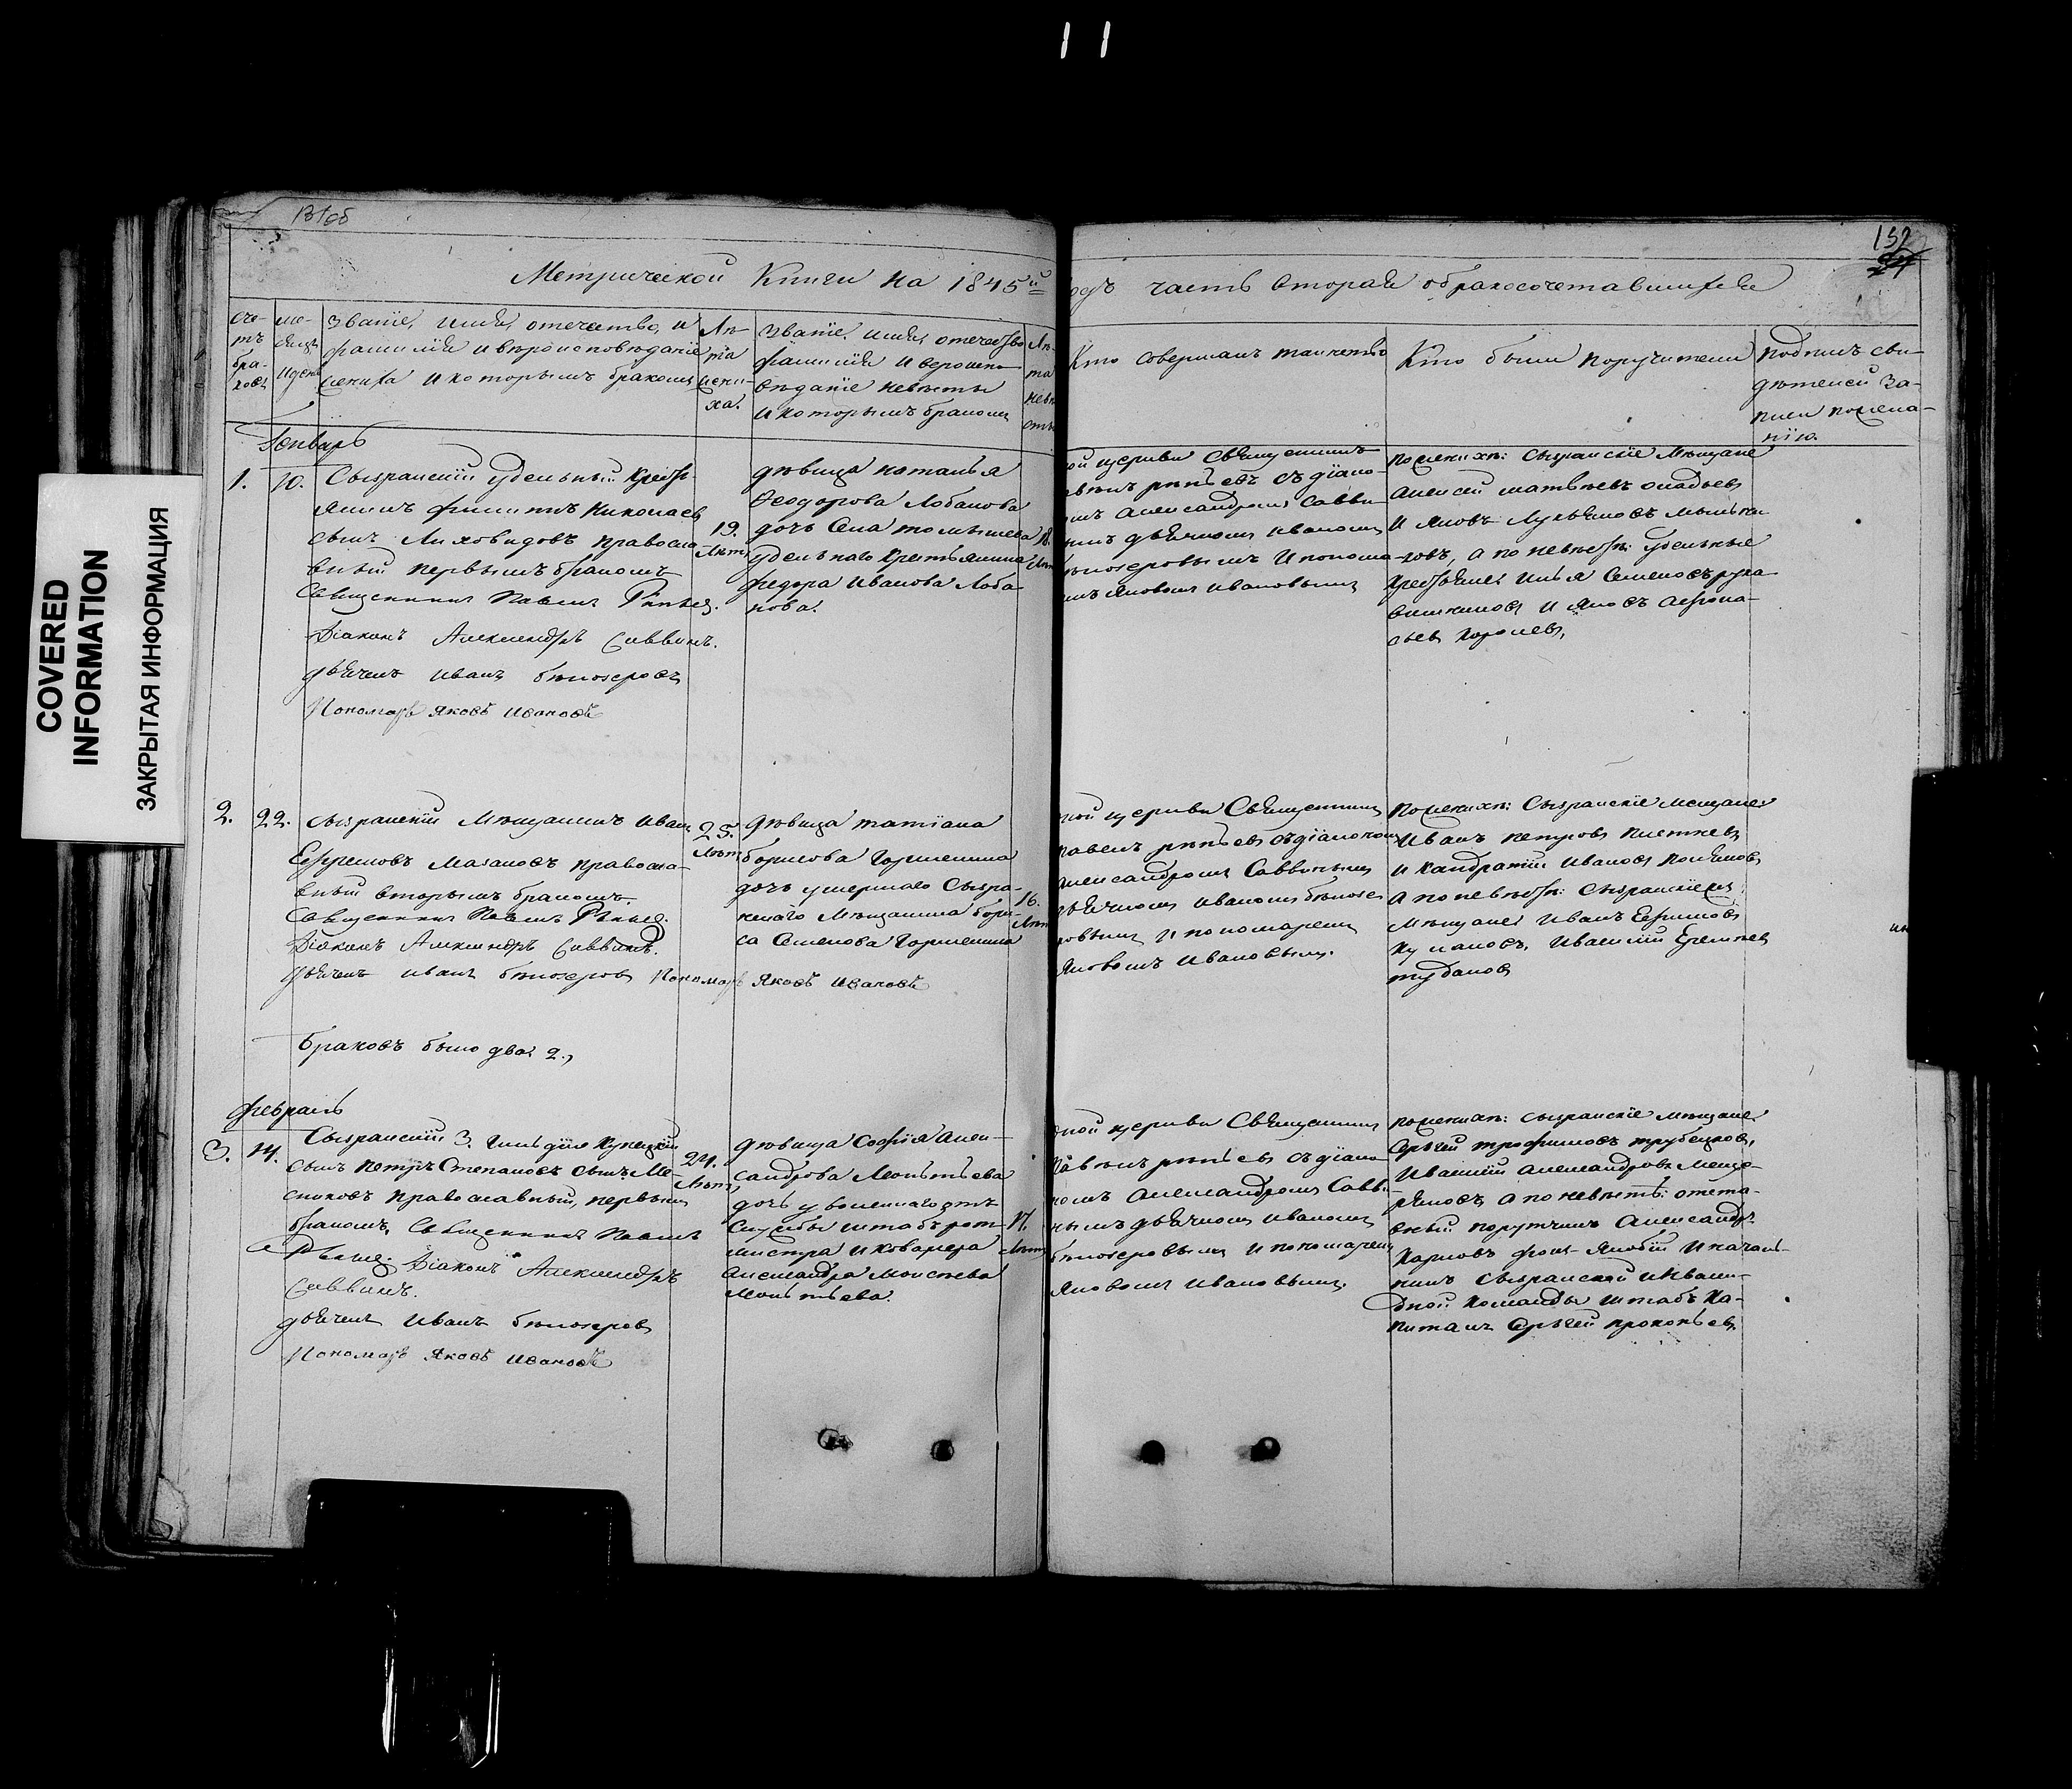 COVERED
INFORMATION
ЗАКРЫТАЯ ИНФОРМАЦИЯ
131об
132
Метрической Книги на 1845й
годъ часть вторая о бракосочетавшихся
Сче-
тъ
бра-
ковъ
Ме-
сяцъ
и день
Званіе, имя, отечество, и
фамилія и вѣроисповѣданіе
жениха и которымъ бракомъ
Лѣ-
та
жени-
ха.
Званіе, имя, отечество
фамилія и вероиспо-
вѣданіе невѣсты
и которымъ бракомъ
Лѣ-
та
невѣ
сты
Кто совершалъ таинство
Кто были поручители
Подпись сви-
дѣтелей за-
писи по жела-
нію.
Генварь
1.
10.
Сызранскій удельный кресть
янинъ Филиппъ Николаевъ
сынъ Лиховидовъ правосла
вный первымъ бракомъ
Священникъ Павелъ
Діаконъ Александръ Саввинъ.
дьячекъ Иванъ Бѣлозеровъ
Пономарь Яковъ Ивановъ
19.
Лѣтъ
дѣвица Наталья
Феодорова Лобанова
дочь Села
удельнаго крестьянина
Федора Иванова Лоба-
нова.
18.
Лѣтъ
ной церкви Священникъ
съ діако-
номъ Александромъ Савви-
нымъ дьячкомъ Иваномъ
Бѣлозеровымъ и понома-
ремъ Яковомъ Ивановымъ
По женихѣ: Сызранскіе мѣщане
Алексей Матвѣевъ
и Яковъ Лукьяновъ Мыльни
ковъ, а по невѣстѣ: удельные
крестьяне Илья Семеновъ Рука
вишниковъ и Яковъ Афона-
сьевъ Королевъ,
2.
22.
Сызранскій мѣщанинъ Иванъ
Ефремовъ Мазановъ правосла-
вный вторымъ бракомъ.
Священникъ Павелъ
Діаконъ Александръ Саввинъ.
дьячекъ Иванъ Бѣлозеровъ Пономарь Яковъ Ивановъ
25.
Лѣтъ
дѣвица Татіана
Борисова Горшенина
дочь умершаго Сызра-
нскаго мѣщанина Бори-
са Семенова Горшенина
16.
Лѣтъ
ной церкви Священникъ
Павелъ съ діакономъ
Александромъ Саввинымъ
дьячкомъ Иваномъ Бѣлозе
ровымъ и пономаремъ
Яковомъ Ивановымъ.
По женихѣ: Сызранскіе мещане
Иванъ Петровъ Плетневъ
и Кандратій Ивановъ
а по невѣстѣ: Сызранскіе
мѣщане Иванъ Ефимовъ
Кулаковъ, Ивасилій Еремѣевъ
Браковъ было два 2.,
Февраль
3.
14.
Сызранскій 3. гильдіи купецкій
сынъ Петръ Степановъ сынъ Мя-
сниковъ православный, первымъ
бракомъ, Священникъ Павелъ
Діаконъ Александръ
Саввинъ.
дьячекъ Иванъ Бѣлозеровъ
Пономарь Яковъ Ивановъ
24.
Лѣтъ,
дѣвица Софія Алек-
сандрова Леонтьева
дочь уволеннаго отъ
службы штабъ рот-
мистра и кавалера
Александра Моисеева
Леонтьева.
17.
Лѣтъ
ной церкви Священникъ
Павелъ съ діако
номъ Александромъ Савви-
нымъ дьячкомъ Иваномъ
Бѣлозеровымъ и пономаремъ
Яковомъ Ивановымъ,
По женихѣ: Сызранскіе мѣщане
Сергѣй Трофимовъ Трубецковъ,
Ивасилій Александровъ Меще-
ряковъ, а по невѣстѣ: отста-
вный порутчикъ Александръ
Карловъ фонъ-Якобій и началь-
никъ Сызранской инвали-
дной команды штабъ ка-
питанъ Сергѣй Прокопьевъ.